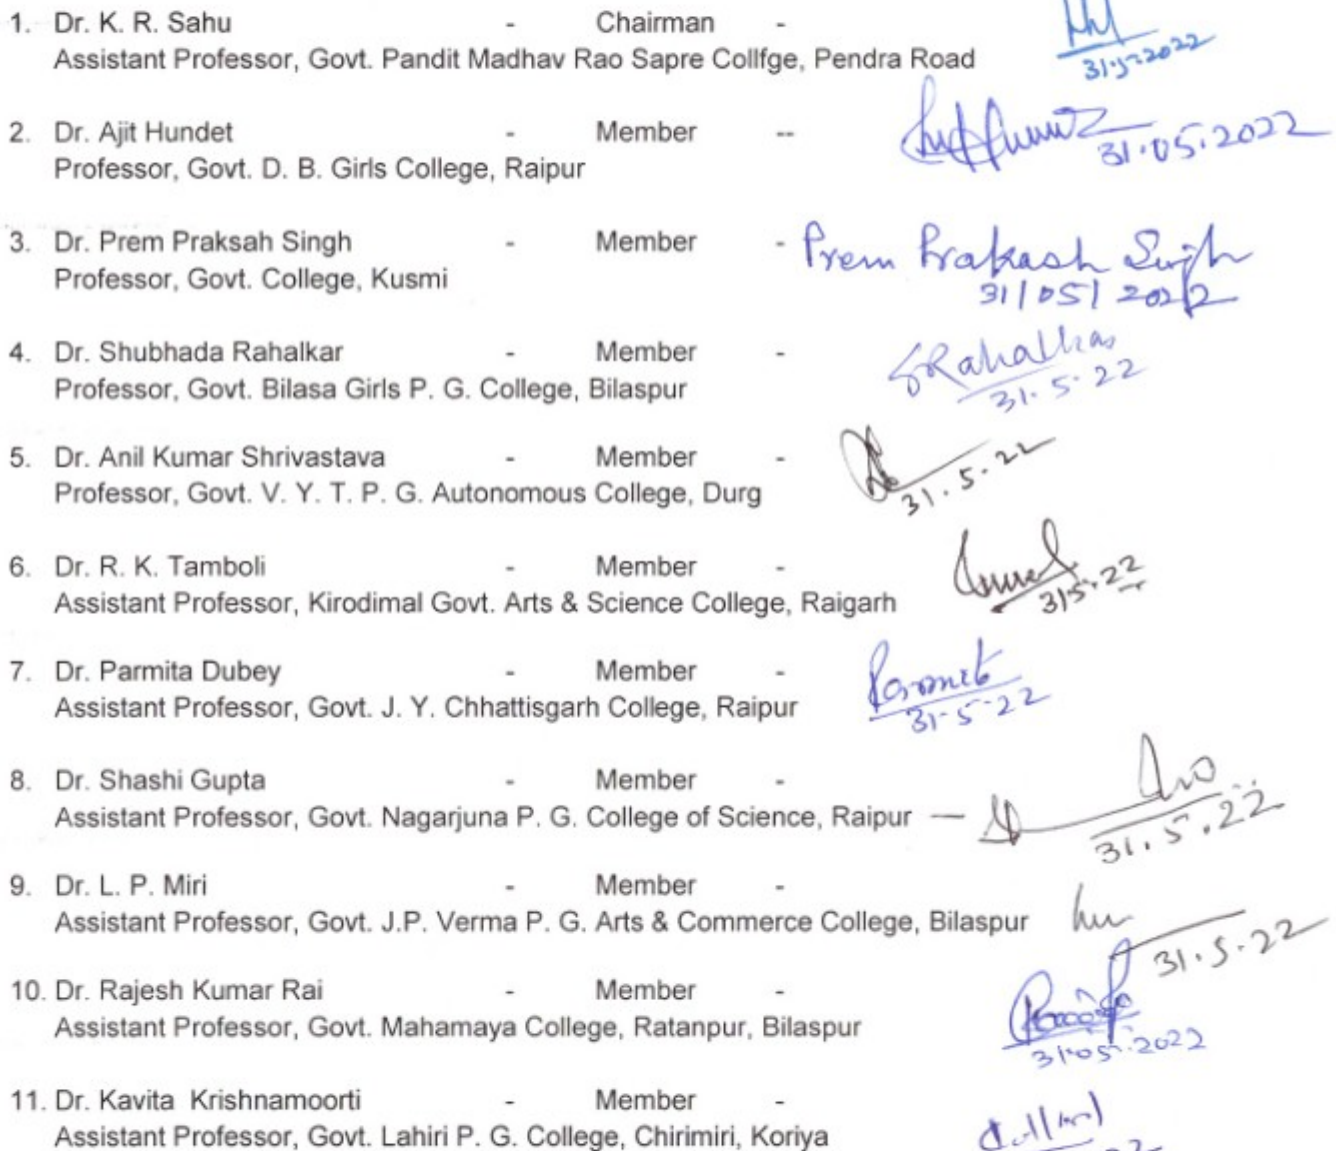 1. Dr. K. R. Sahu - Chairman -
Assistant Professor, Govt. Pandit Madhav Rao Sapre Collfge, Pendra Road
31.5.2022
2. Dr. Ajit Hundet - Member --
Professor, Govt. D. B. Girls College, Raipur
31.05.2022
3. Dr. Prem Praksah Singh - Member - Prem Prakash Singh
Professor, Govt. College, Kusmi
31/05/2022
4. Dr. Shubhada Rahalkar - Member - SRahalkar
Professor, Govt. Bilasa Girls P. G. College, Bilaspur
31.5.22
5. Dr. Anil Kumar Shrivastava - Member -
Professor, Govt. V. Y. T. P. G. Autonomous College, Durg
31.5.22
6. Dr. R. K. Tamboli - Member -
Assistant Professor, Kirodimal Govt. Arts & Science College, Raigarh
31.5.22
7. Dr. Parmita Dubey - Member -
Assistant Professor, Govt. J. Y. Chhattisgarh College, Raipur
31-5-22
8. Dr. Shashi Gupta - Member -
Assistant Professor, Govt. Nagarjuna P. G. College of Science, Raipur —
31.5.22
9. Dr. L. P. Miri - Member -
Assistant Professor, Govt. J.P. Verma P. G. Arts & Commerce College, Bilaspur
31.5.22
10. Dr. Rajesh Kumar Rai - Member -
Assistant Professor, Govt. Mahamaya College, Ratanpur, Bilaspur
31.05.2022
11. Dr. Kavita Krishnamoorti - Member -
Assistant Professor, Govt. Lahiri P. G. College, Chirimiri, Koriya